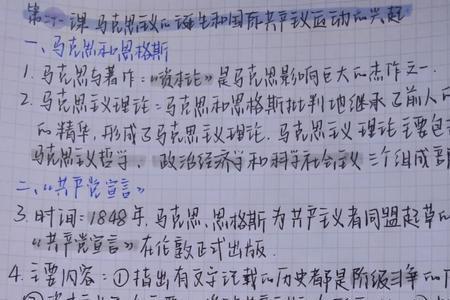 第二十一课 马克思主义的诞生和国际共产主义运动的兴起
一、马克思和恩格斯
1. 马克思与著作:“资本论”是马克思影响巨大的杰作之一.
2. 马克思主义理论:马克思和恩格斯批判地继承了前人的
的精华,形成了马克思主义理论. 马克思主义理论主要包
马克思主义哲学、政治经济学和科学社会主义三个组成部
二、“共产党宣言”
3. 时间:1848年,马克思、恩格斯为共产主义者同盟起草的
“共产党宣言”在伦敦正式出版.
4. 主要内容:①指出有文字记载的历史都是阶级斗争的